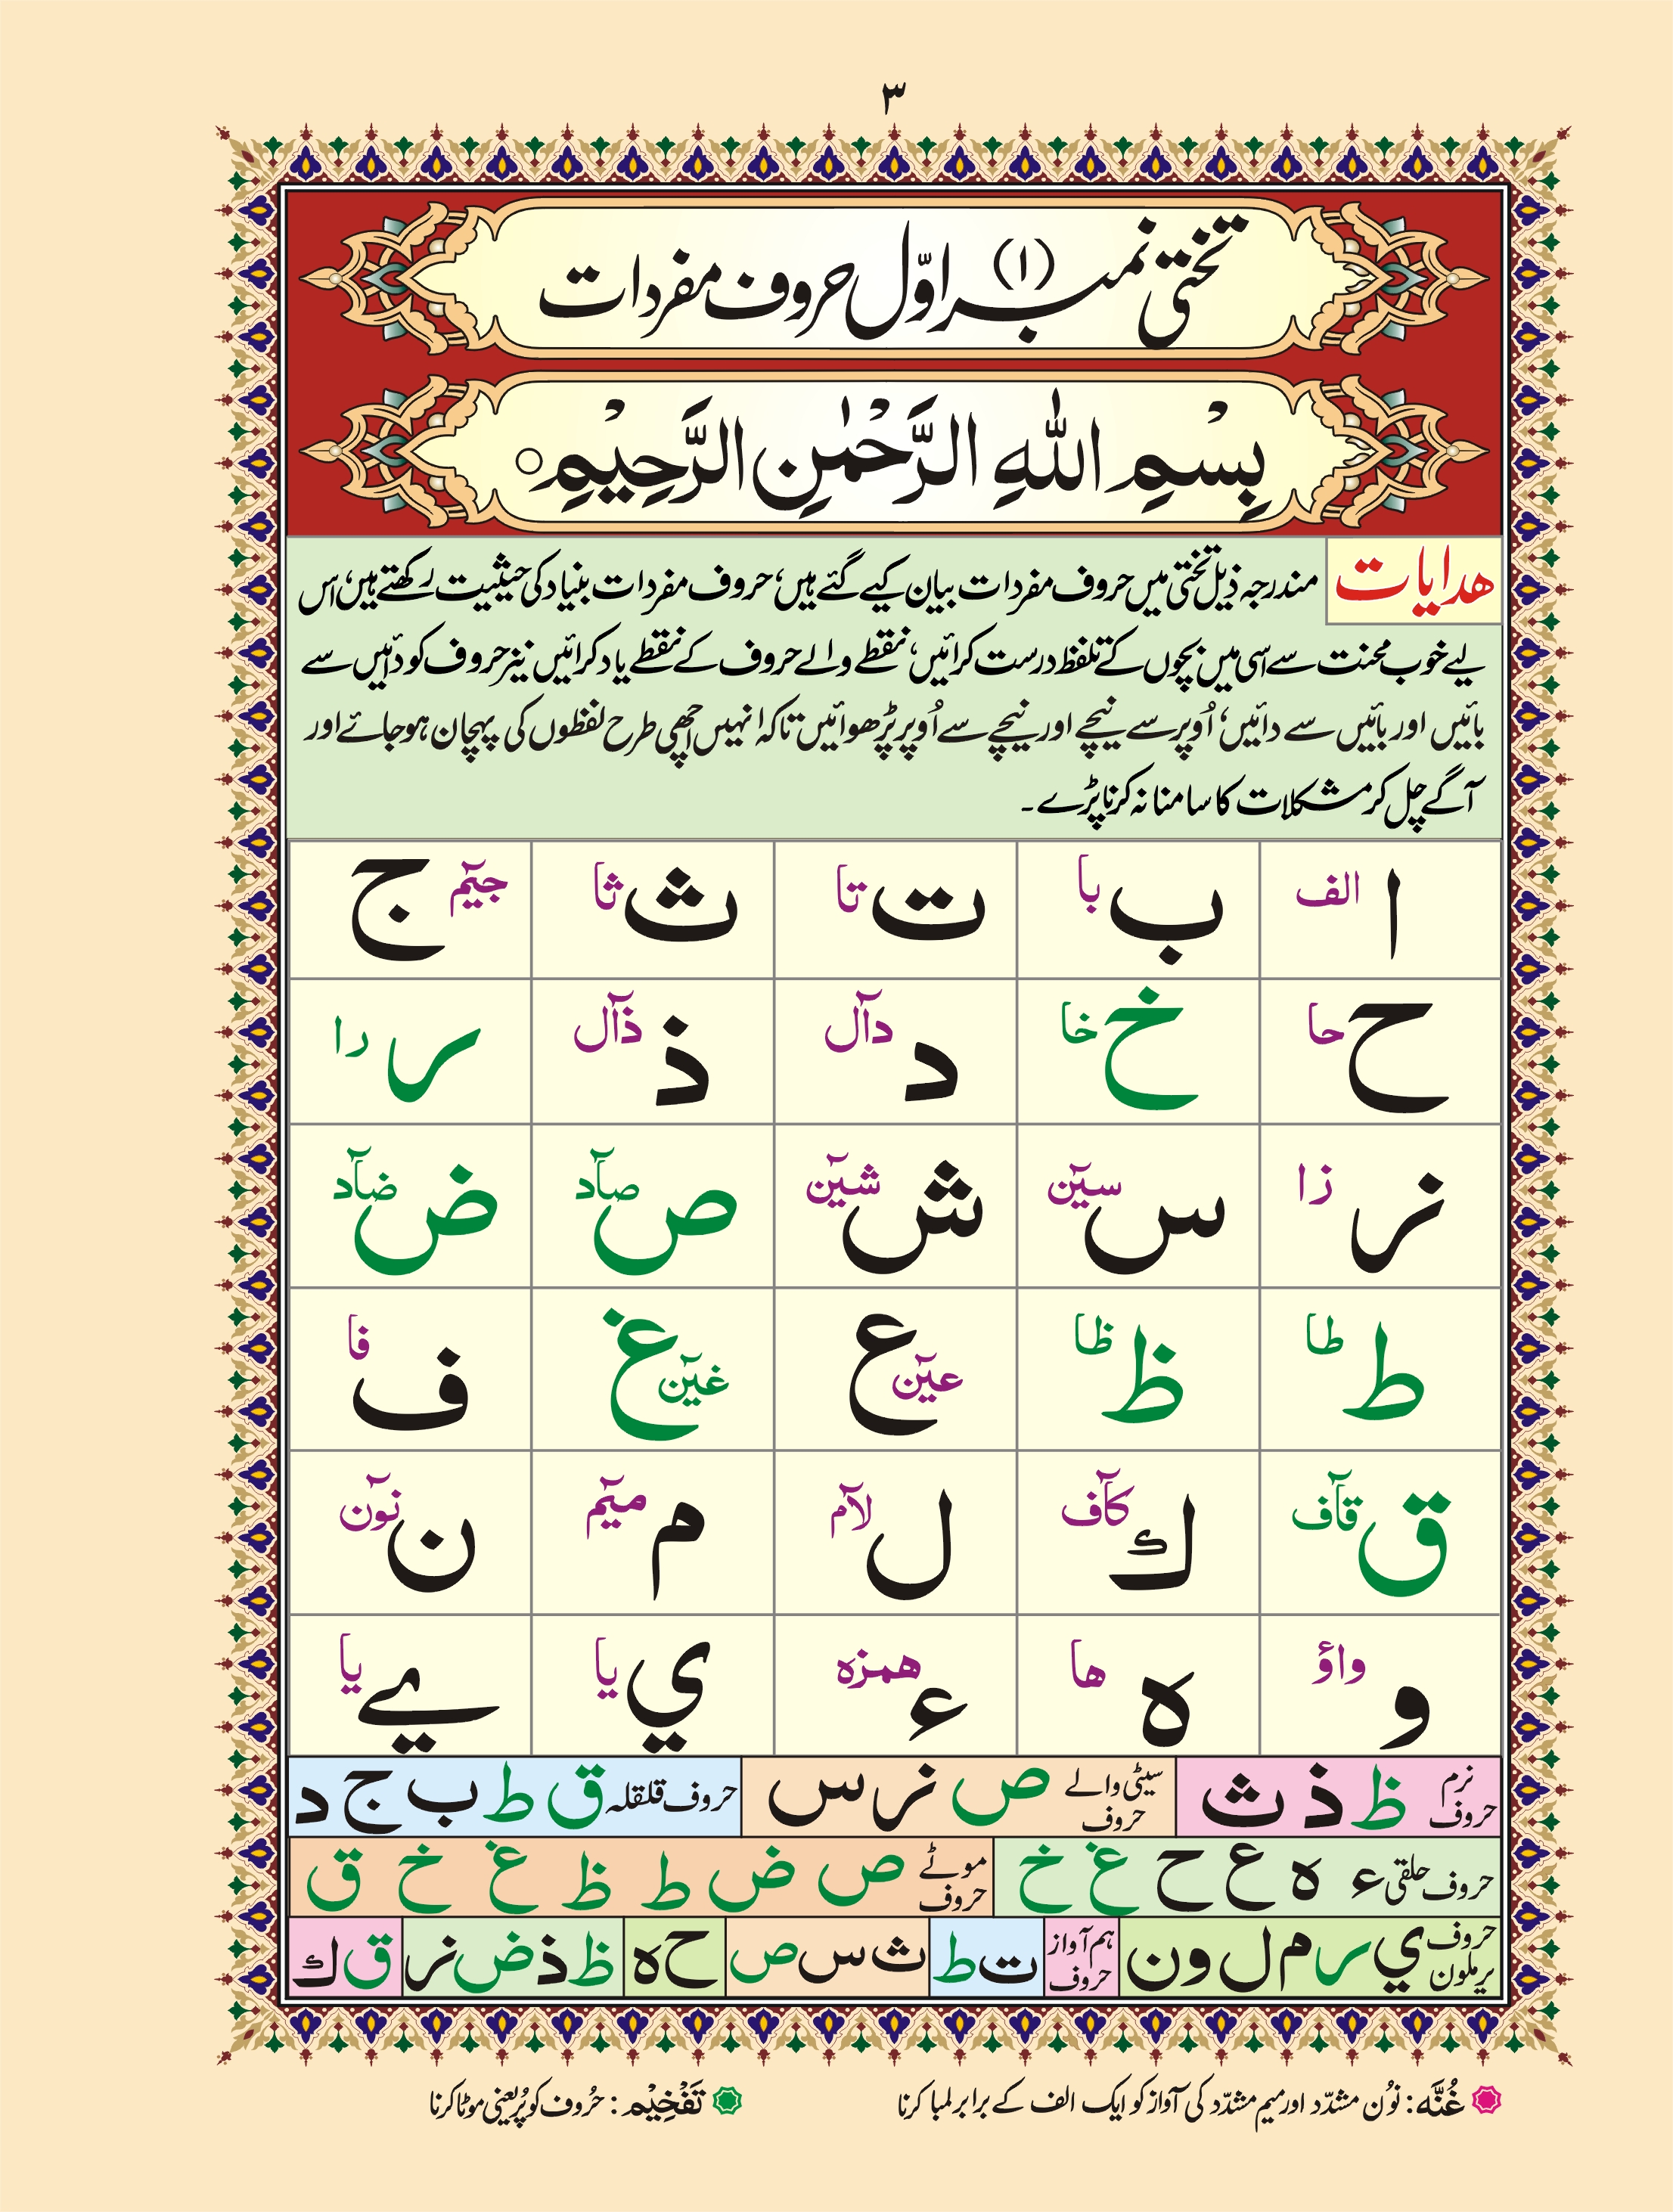 ۳
تختی نمبر (۱) اوّل حروف مفردات
بِسْمِ اللّٰهِ الرَّحْمٰنِ الرَّحِيْمِ ○
ھدایات
مندرجہ ذیل تختی میں حروف مفردات بیان کیے گئے ہیں، حروف مفردات بنیاد کی حیثیت رکھتے ہیں، اس
لیے خوب محنت سے اسی میں بچوں کے تلفظ درست کرائیں، نقطے والے حروف کے نقطے یاد کرائیں نیز حروف کو دائیں سے
بائیں اور بائیں سے دائیں، اُوپر سے نیچے اور نیچے سے اُوپر پڑھوائیں تاکہ انہیں اچھی طرح لفظوں کی پہچان ہوجائے اور
آگے چل کر مشکلات کا سامنا نہ کرنا پڑے۔
ا الف ب با ت تا ث ثا ج جیٓم
ح حا خ خا د دآل ذ ذآل ر را
ز زا س سیٓن ش شیٓن ص صآد ض ضآد
ط طا ظ ظا ع عیٓن غ غیٓن ف فا
ق قآف ك کآف ل لآم م میٓم ن نوٓن
و واؤ ہ ھا ء ھمزہ ي یا ے یا
نرم حروف ظ ذ ث سیٹی والے حروف ص ز س حروف قلقلہ ق ط ب ج د
حروف حلقی ء ہ ع ح غ خ موٹے حروف ص ض ط ظ غ خ ق
حروف یرملون ي ر م ل و ن ہم آواز حروف ت ط ث س ص ح ہ ظ ذ ض ز ق ك
غُنَّه: نوُن مشدّد اور میم مشدّد کی آواز کو ایک الف کے برابر لمبا کرنا تَفْخِيْم: حرُوف کو پُر یعنی موٹا کرنا